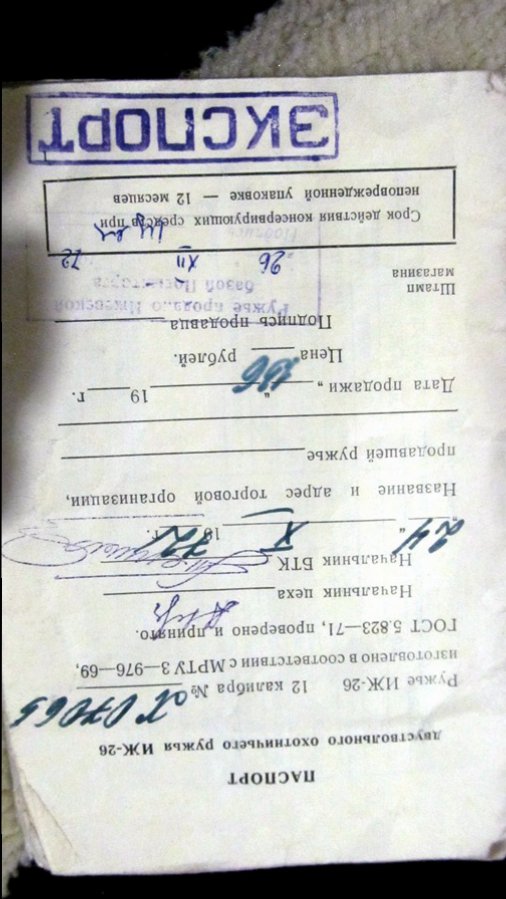 ПАСПОРТ
двуствольного охотничьего ружья ИЖ-26
Ружье ИЖ-26 12 калибра №
изготовлено в соответствии с МРТУ 3—976—69,
ГОСТ 5.823—71, проверено и принято.
Начальник цеха
Начальник БТК
„24“ X 1972 г.
Название и адрес торговой организации,
продавшей ружье
Дата продажи „ “ 19 г.
Цена 186 рублей.
Подпись продавца
Штамп
магазина
Ружье продано Ижевской
базой
„26“ XII 72
Подпись
Срок действия консервирующих средств при
неповрежденной упаковке — 12 месяцев
ЭКСПОРТ